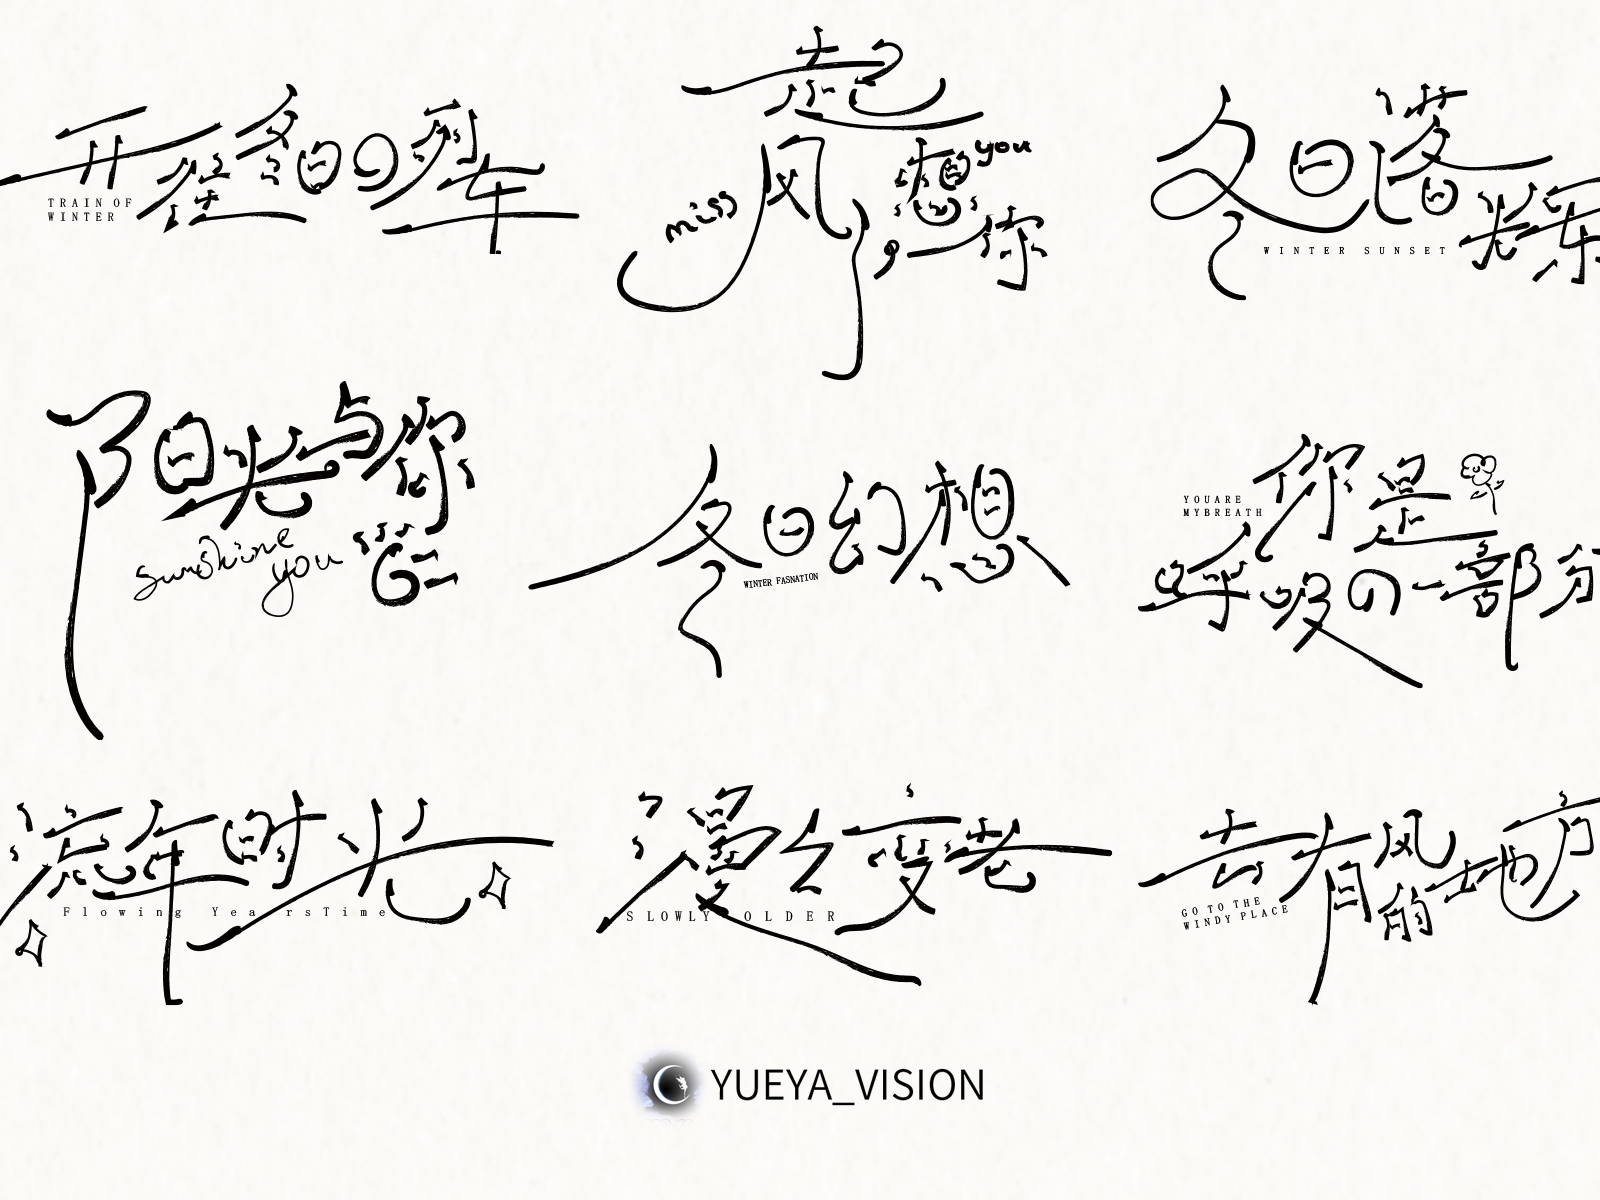 开往冬日の列车
TRAIN OF
WINTER
起风了,想你
miss
you
冬日落日
WINTER SUNSET
阳光与你
sunshine
you
冬日幻想
WINTER FASNATION
你是
呼吸の一部分
YOUARE
MYBREATH
流年时光
Flowing YearsTime
漫久变老
SLOWLY OLDER
去有风的地方
GO TO THE
WINDY PLACE
YUEYA_VISION